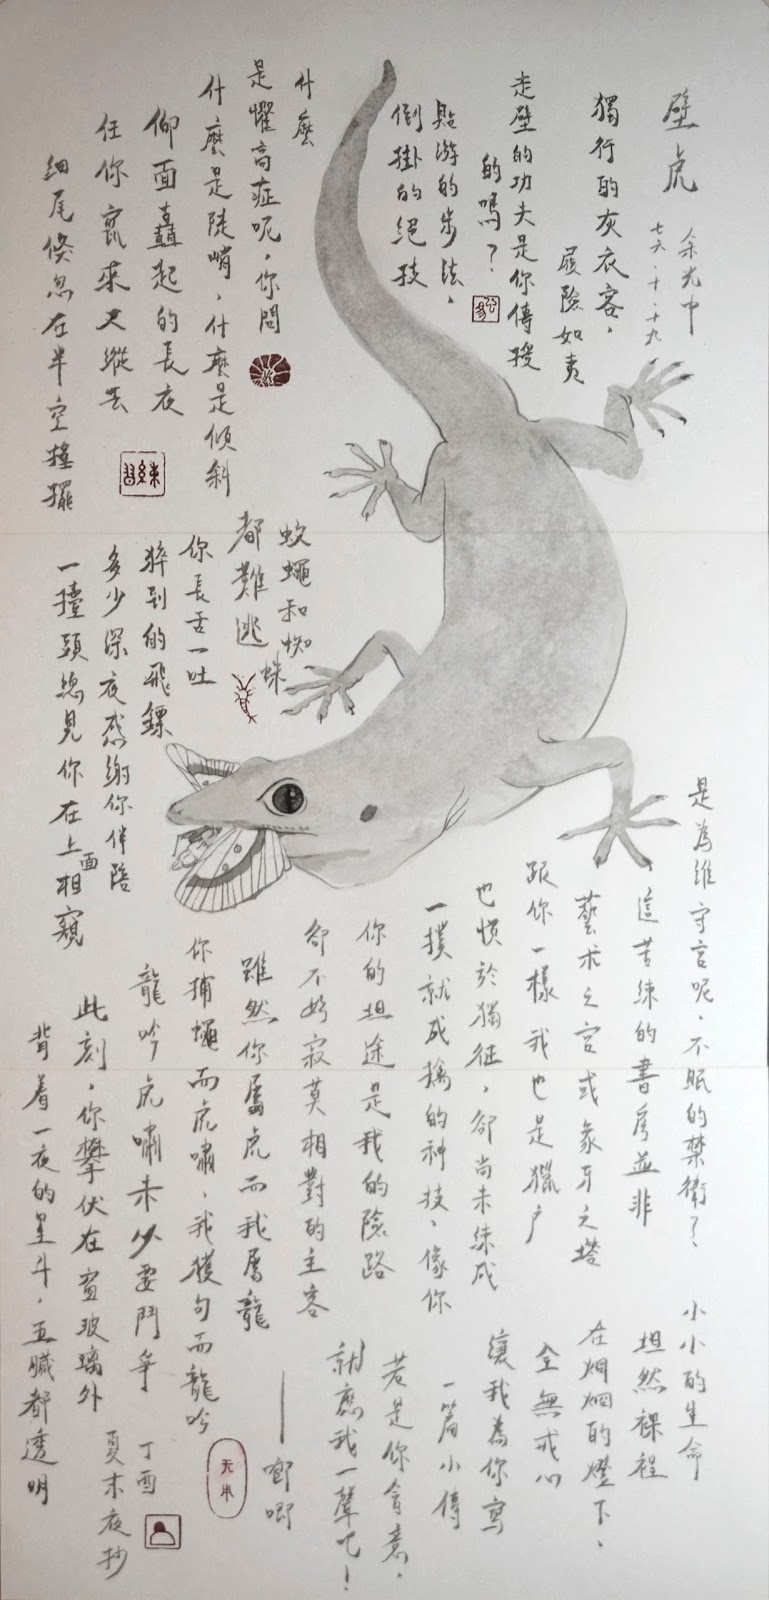 壁虎
余光中
七六.十.十九
獨行的灰衣客，
履險如夷
走壁的功夫是你傳授
的嗎？
貼游的步法，
倒掛的絕技
什麼
是懼高症呢，你問
什麼是陡峭，什麼是傾斜
仰面矗起的長夜
任你竄來又縱去
細尾倏忽在半空搖擺
練習
蚊蠅和蜘蛛
都難逃
你長舌一吐
猝到的飛鏢
多少深夜感謝你伴陪
一擡頭總見你在上面相窺
是為誰守宮呢，不眠的禁衛？
這苦練的書房並非
藝术之宮或象牙之塔
跟你一樣我也是獵户
也慣於獨征，卻尚未練成
一撲就成擒的神技，像你
你的坦途是我的險路
卻不妨寂莫相對的主客
雖然你屬虎而我屬龍
你捕蠅而虎嘯，我獲句而龍吟
龍吟虎嘯未必要鬥爭
此刻，你攀伏在窗玻璃外
背着一夜的星斗，五臟都透明
小小的生命
坦然裸裎
在炯炯的燈下，
全無戒心
讓我為你寫
一篇小傳
若是你會意，
就應我一聲吧！
——唧唧
丁酉
夏末夜抄